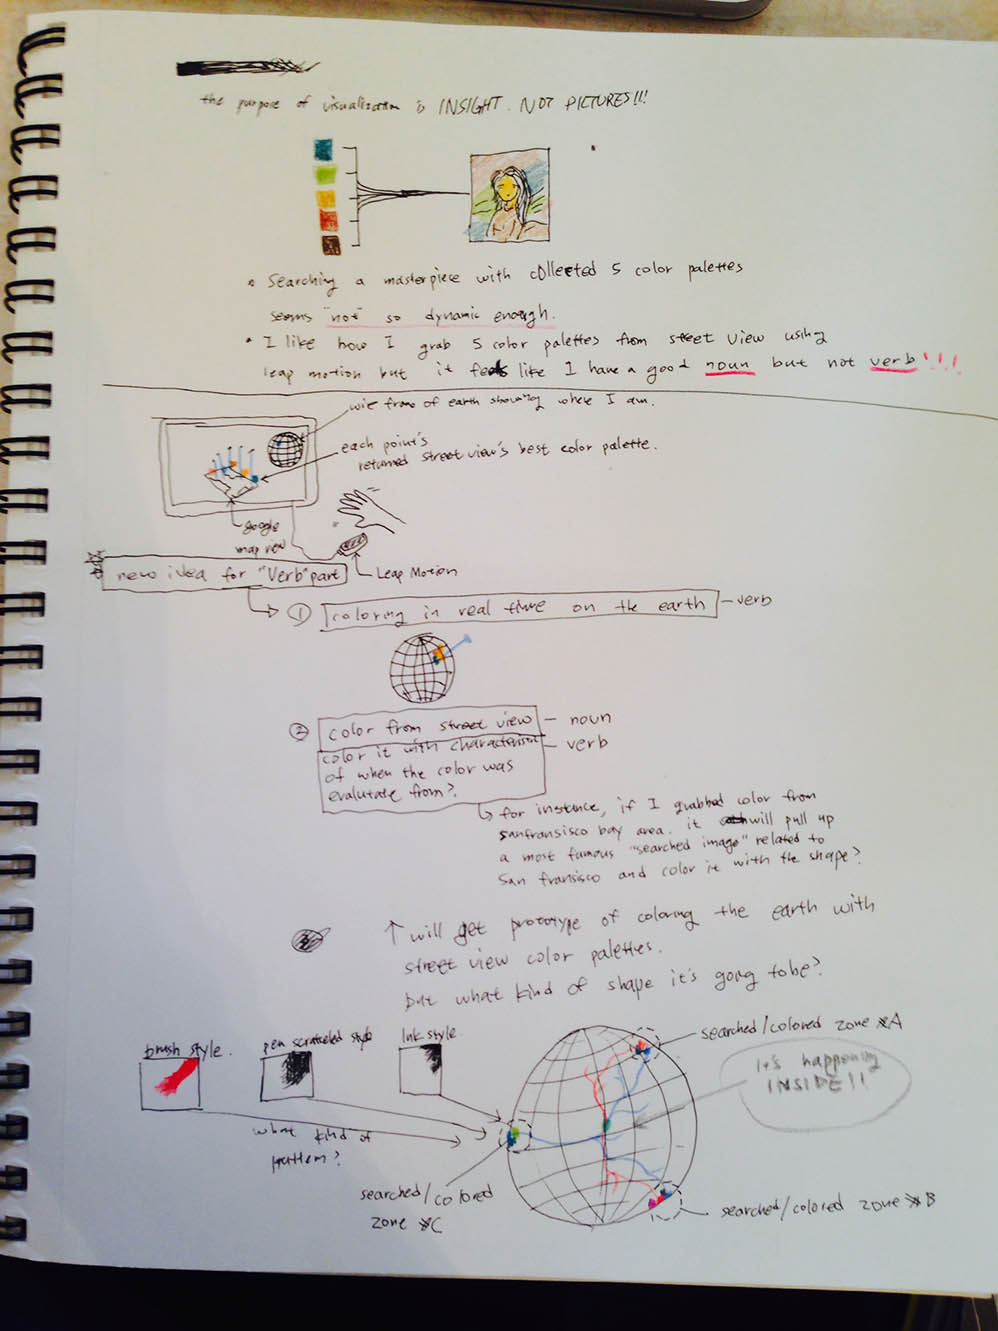 the purpose of visualization is INSIGHT. NOT PICTURES!!!
• Searching a masterpiece with collected 5 color palettes
seems "not" so dynamic enough.
• I like how I grab 5 color palettes from street view using
leap motion but it feels like I have a good noun but not verb!!!
wire frame of earth showing where I am.
each point's
returned street view's best color palette.
google
map view
Leap Motion
new idea for "Verb" part
① coloring in real time on the earth – verb
② color from street view – noun
color it with characteristic – verb
of when the color was
evalutate from?
for instance, if I grabbed color from
sanfransisco bay area. it will pull up
a most famous "searched image" related to
San fransisco and color it with the shape?
↑ will get prototype of coloring the earth with
street view color palettes.
but what kind of shape it's going to be?
brush style.
pen scratched style
Ink style.
searched/colored zone *A
It's happening
INSIDE!!
what kind of
pattern?
searched/colored
zone *C
searched/colored zone *B